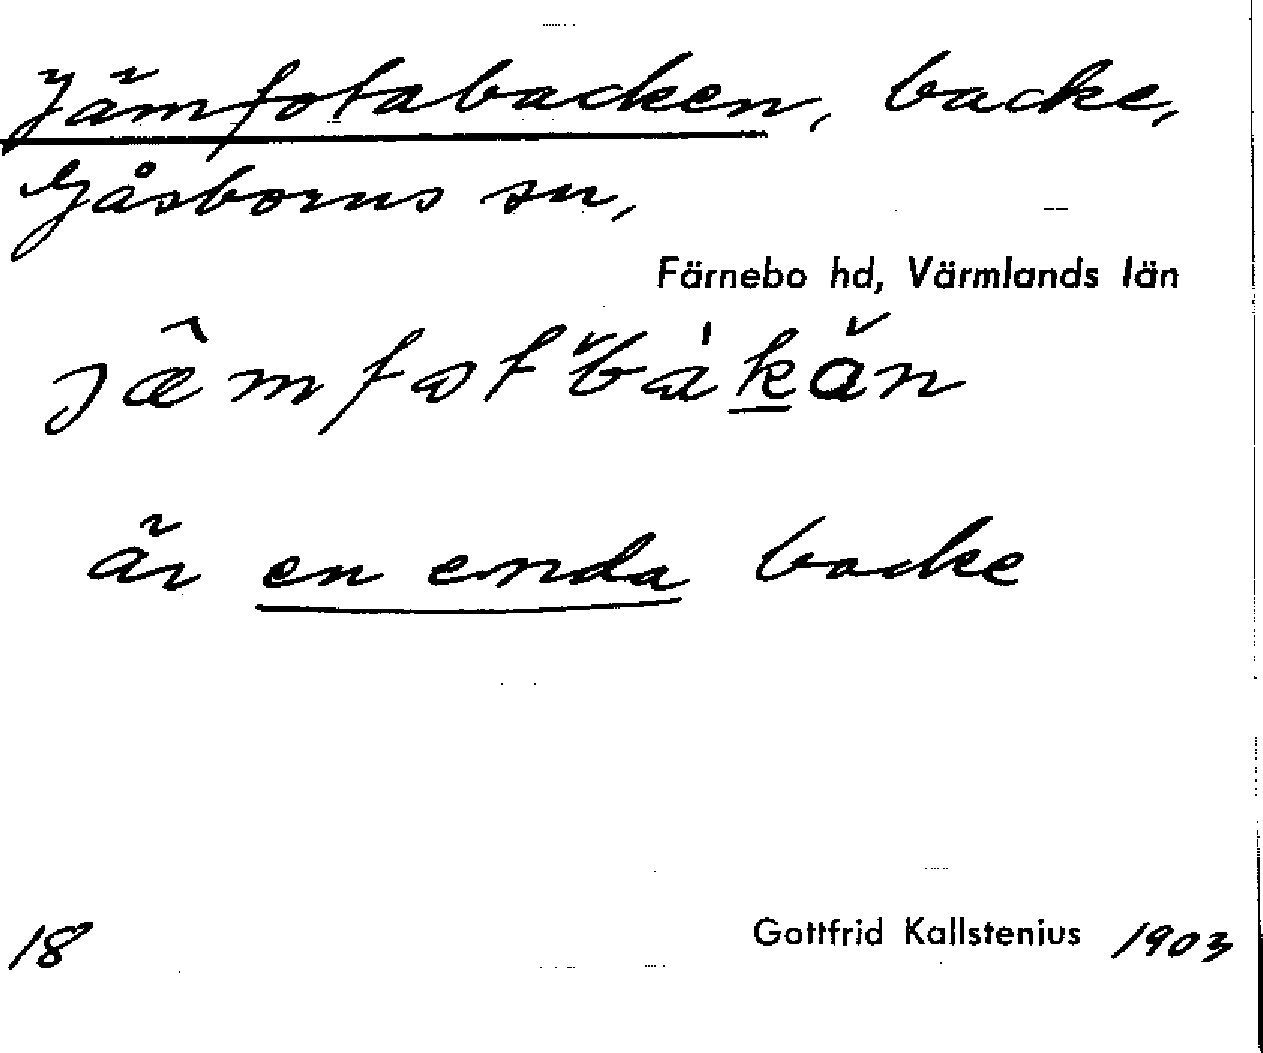 Jämfotabacken, backe,
Gåsborns sn,
Färnebo hd, Värmlands län
är en enda backe
18
Gottfrid Kallstenius 1903